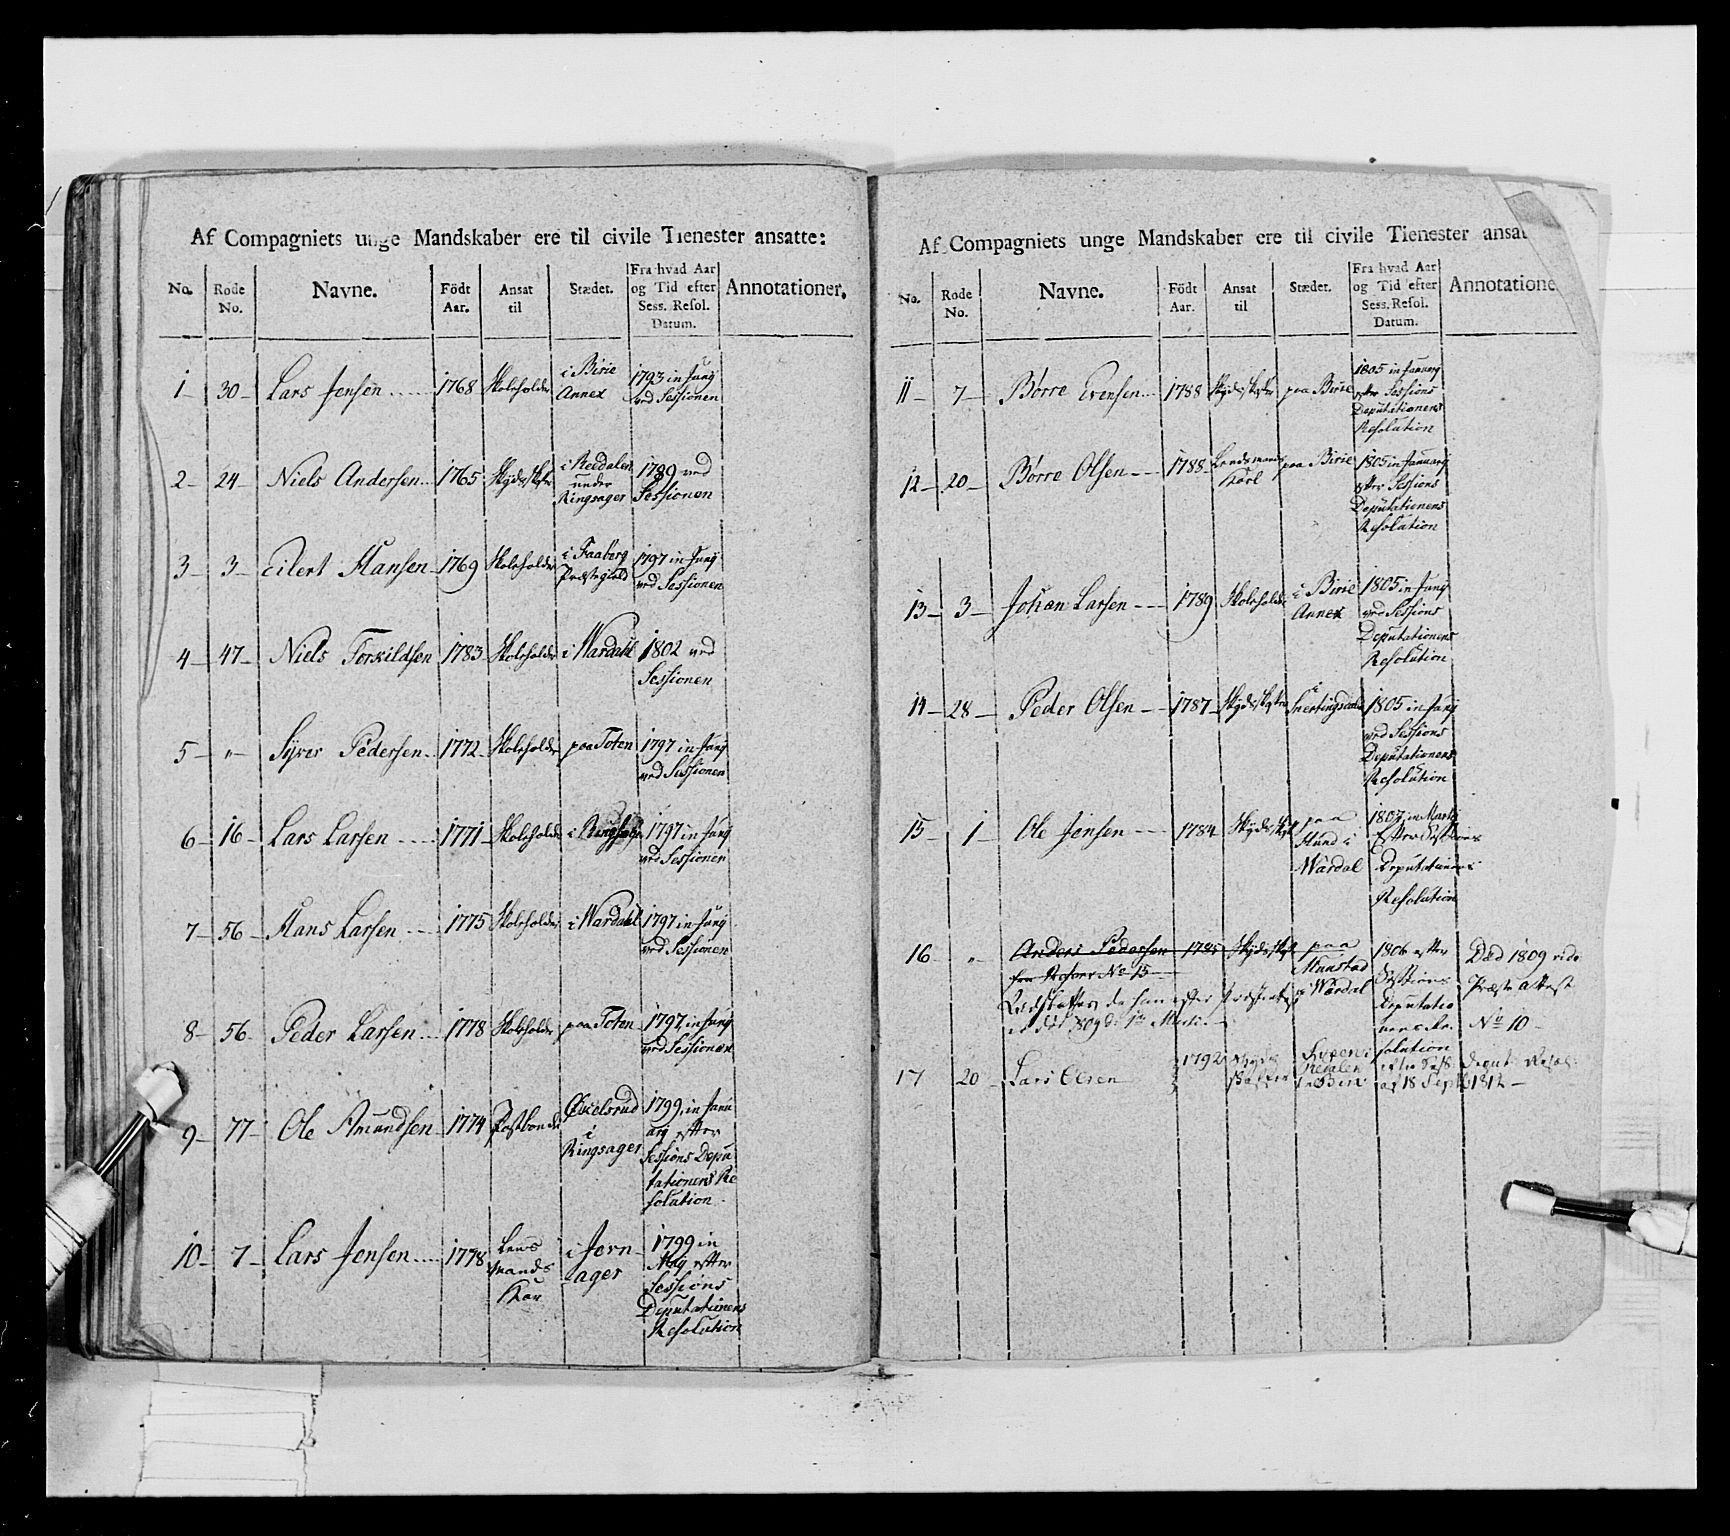 Af Compagniets unge Mandskaber ere til civile Tienester ansatte:
No. Rode No. Navne. Födt Aar. Ansat til Stædet. Fra hvad Aar og Tid efter Sess. Resol. Datum. Annotationer.
1 30 Lars Jensen 1768 Skoleholder i Birie Annex 1793 in Junÿ ved Sessionen
2 24 Niels Andersen 1765 Skydsskaffer under Ringsager 1789 ved Sessionen
3 3 Eilert Hansen 1769 Skoleholder i Faaberg Præstegield 1797 in Junÿ ved Sessionen
4 47 Niels Torkildsen 1783 Skoleholder i Wardahl 1802 ved Sessionen
5 " Syver Pedersen 1772 Skoleholder paa Toten 1797 in Junÿ ved Sessionen
6 16 Lars Larsen 1771 Skoleholder i 1797 in Junÿ ved Sessionen
7 56 Hans Larsen 1775 Skoleholder i Wardahl 1797 in Junÿ ved Sessionen
8 56 Peder Larsen 1778 Skoleholder paa Toten 1797 in Junÿ ved Sessionen
9 77 Ole Amundsen 1774 Postbonde i Ringsager 1799 in Janu
arÿ efter
Sessions Depu
tationens Re
solution
10 7 Lars Jensen 1778 Lens
mands
Kar i Jern
ager 1799 in
Maÿ efter
Sessions
Deputationens
Resolution
Af Compagniets unge Mandskaber ere til civile Tienester ansat
No. Rode No. Navne. Födt Aar. Ansat til Stædet. Fra hvad Aar og Tid efter Sess. Resol. Datum. Annotatione
11 7 Børre Evensen 1788 Skydsskaffer paa Birie 1805 in Januarÿ
efter Sessions
Deputationens
Resolution
12 20 Børre Olsen 1788 Lendsmands
Karl paa Birie 1805 in Januarÿ
efter Sessions
Deputationens
Resolution
13 3 Johan Larsen 1789 Skoleholder i Birie
Annex 1805 in Junÿ
ved Sessions
Deputationens
Resolution
14 28 Peder Olsen 1787 Skydsskaffer i
Snertingdal 1805 in Junÿ
ved Sessions
Deputationens
Resolution
15 1 Ole Jensen 1784 Skydsskaf paa
Hund i
Wardal 1807 in Martÿ
Efter Sessions
Deputations
Resolution
16 " Anders Pedersen 1785 Skydsskaf paa
Munstad
i Wardal 1806 efter
Sessions
Deputatio
nens Re
solution Død 1809 vide
Præste Attest
No 10
17 20 Lars Olsen 1792 Skyds
skaffer i Birie efter Sess: Deput: Resol:
af 18 Septb 1812